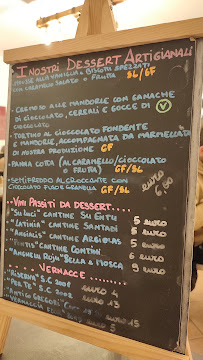 I NOSTRI DESSERT ARTIGIANALI
MOUSSE ALLA VANIGLIA e BISCOTTI SPEZZATI
CON CARAMELLO SALATO o FRUTTA SL/GF
CREMOSO ALLE MANDORLE CON GANACHE
DI CIOCCOLATO, CEREALI E GOCCE DI
CIOCCOLATO V
TORTINO AL CIOCCOLATO FONDENTE
E MANDORLE, ACCOMPAGNATA DA MARMELLATA
DI NOSTRA PRODUZIONE GF
PANNA COTTA (AL CARAMELLO/CIOCCOLATO
O FRUTTA) GF/SL
SEMIFREDDO AL CROCCANTE CON
CIOCCOLATO FUSO E GRANELLA GF/SL
euro
6,00
VINI PASSITI DA DESSERT....
"SU'NICI" CANTINE SU ENTU 5 euro
"LATINIA" CANTINE SANTADI 5 euro
"ANGIALIS" CANTINE ARGIOLAS 5 euro
CANTINE CONTINI 6 euro
ANGHELU RUJU "SELLA & MOSCA 9 euro
VERNACCE
"RISERVA" S.C. 2004
"PER TE" S.C. 2008 euro 4
"ANTICO GREGORI" euro 15
VERNACCIA euro 5